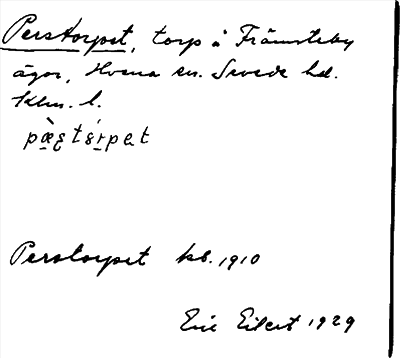 Perstorpet, torp å Främsteby
ägor, Hvena sn. Sevede hd.
Klm. l.
pæ̀ʂtórpet
Perstorpet kb. 1910
Eric Eilert 1929